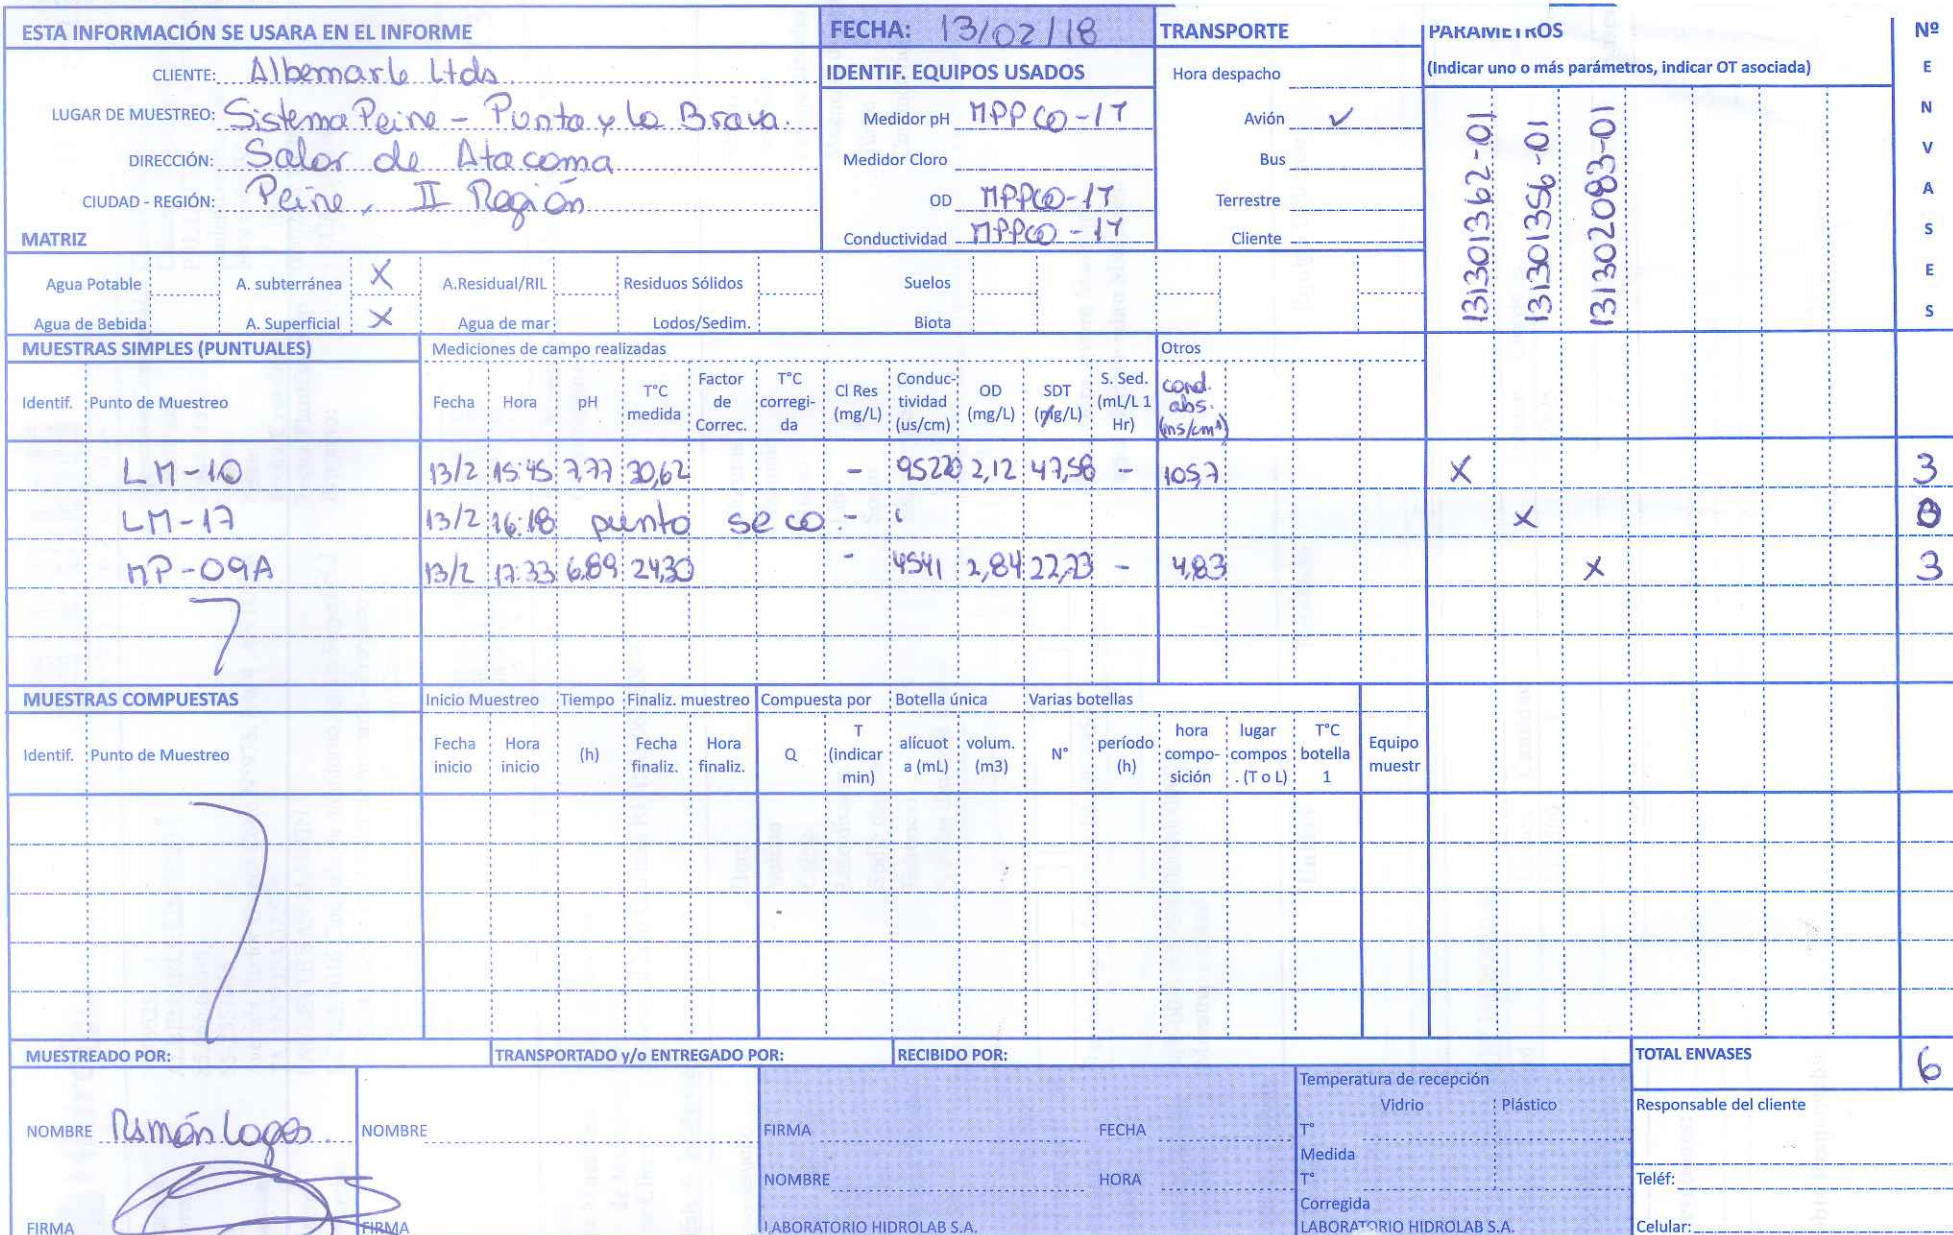 ESTA INFORMACIÓN SE USARA EN EL INFORME
CLIENTE: Albemarle Ltda
LUGAR DE MUESTREO: Sistema Peine - Punta y la Brava.
DIRECCIÓN: Salar de Atacama
CIUDAD - REGIÓN: Peine, II Región
FECHA: 13/02/18
IDENTIF. EQUIPOS USADOS
Medidor pH MPPCO-17
Medidor Cloro
OD MPPCO-17
Conductividad MPPCO-17
TRANSPORTE
Hora despacho
Avión ✓
Bus
Terrestre
Cliente
PARAMETROS
(Indicar uno o más parámetros, indicar OT asociada)
131301362-01
131301356-01
131302083-01
Nº ENVASES
MATRIZ
Agua Potable A. subterránea X A.Residual/RIL Residuos Sólidos Suelos
Agua de Bebida A. Superficial X Agua de mar Lodos/Sedim. Biota
MUESTRAS SIMPLES (PUNTUALES) Mediciones de campo realizadas Otros
Identif. Punto de Muestreo Fecha Hora pH T°C medida Factor de Correc. T°C corregi-da Cl Res (mg/L) Conduc-tividad (us/cm) OD (mg/L) SDT (g/L) S. Sed. (mL/L 1 Hr) cond. abs.
LM-10 13/2 15:45 7,77 30,62 - 95220 2,12 47,58 - X 3
LM-17 13/2 16:18 punto seco - X 0
MP-09A 13/2 17:33 6,89 24,30 - 4541 2,84 - 4,83 X 3
MUESTRAS COMPUESTAS Inicio Muestreo Tiempo Finaliz. muestreo Compuesta por Botella única Varias botellas
Identif. Punto de Muestreo Fecha inicio Hora inicio (h) Fecha finaliz. Hora finaliz. Q T (indicar min) alícuot a (mL) volum. (m3) N° período (h) hora compo-sición lugar compos . (T o L) T°C botella 1 Equipo muestr
MUESTREADO POR: TRANSPORTADO y/o ENTREGADO POR: RECIBIDO POR: TOTAL ENVASES 6
NOMBRE Ramón Lagos
FIRMA
NOMBRE
FIRMA
FIRMA FECHA
NOMBRE HORA
LABORATORIO HIDROLAB S.A.
Temperatura de recepción
Vidrio Plástico
T°
Medida
T°
Corregida
LABORATORIO HIDROLAB S.A.
Responsable del cliente
Teléf:
Celular: